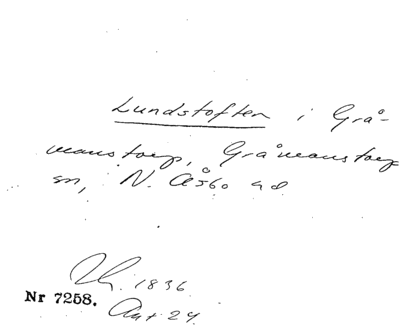 Lundstoften i Grå-
manstorp, Gråmanstorp
sn, N. Åsbo hd
Th. 1836
Nr 7258.
Akt 24